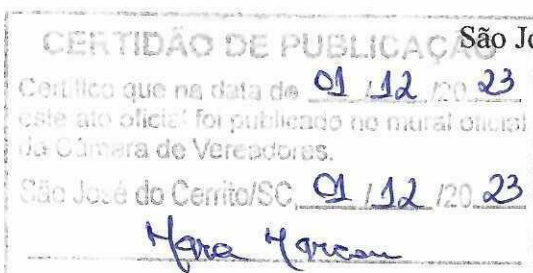 São Jo
CERTIDÃO DE PUBLICAÇÃO
Certifico que na data de 01 / 12 /20 23
este ato oficial foi publicado no mural oficial
da Câmara de Vereadores.
São José do Cerrito/SC, 01 / 12 /20 23
Mara Marcon